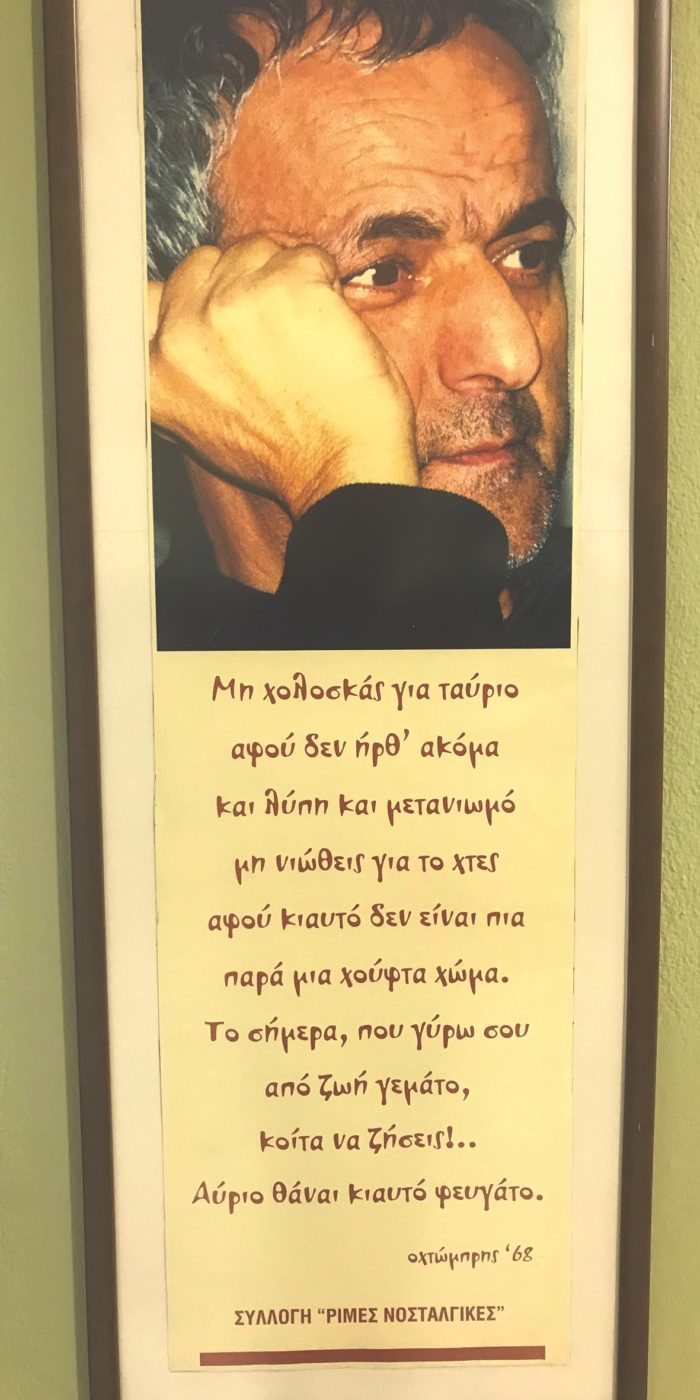 Μη χολοσκάς για ταύριο
αφού δεν ήρθ’ ακόμα
και λύπη και μετανιωμό
μη νιώθεις για το χτες
αφού κιαυτό δεν είναι πια
παρά μια χούφτα χώμα.
Το σήμερα, που γύρω σου
από ζωή γεμάτο,
κοίτα να ζήσεις!..
Αύριο θάναι κιαυτό φευγάτο.
οχτώμπρης ‘68
ΣΥΛΛΟΓΗ “ΡΙΜΕΣ ΝΟΣΤΑΛΓΙΚΕΣ”